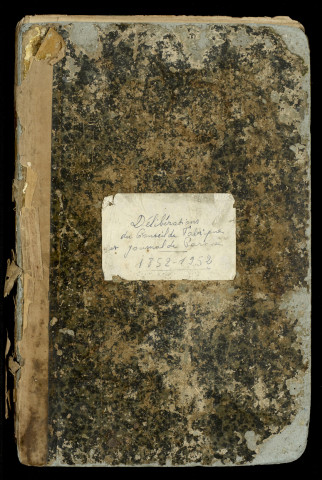 Délibérations
du Conseil de Fabrique
et journal de Paroisse
1852-1952